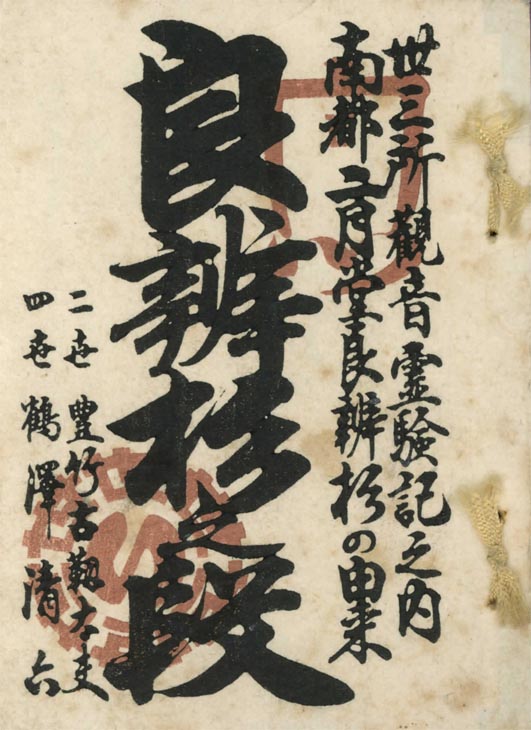 卅三所觀音靈驗記之内
南都二月堂良辨杉の由来
良辨杉之段
二世 豊竹古靱太夫
四世 鶴澤清六